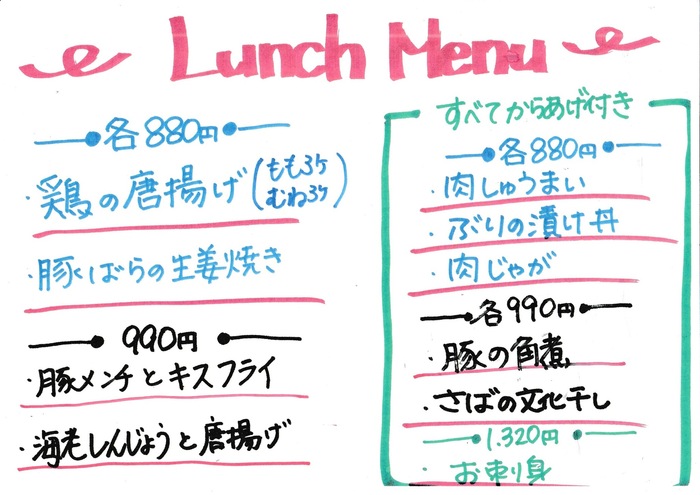 Lunch Menu
各880円
・鶏の唐揚げ(もも3ケ
むね3ケ)
・豚ばらの生姜焼き
990円
・豚メンチとキスフライ
・海老しんじょうと唐揚げ
すべてからあげ付き
各880円
・肉しゅうまい
・ぶりの漬け丼
・肉じゃが
各990円
・豚の角煮
・さばの文化干し
1.320円
・お刺身